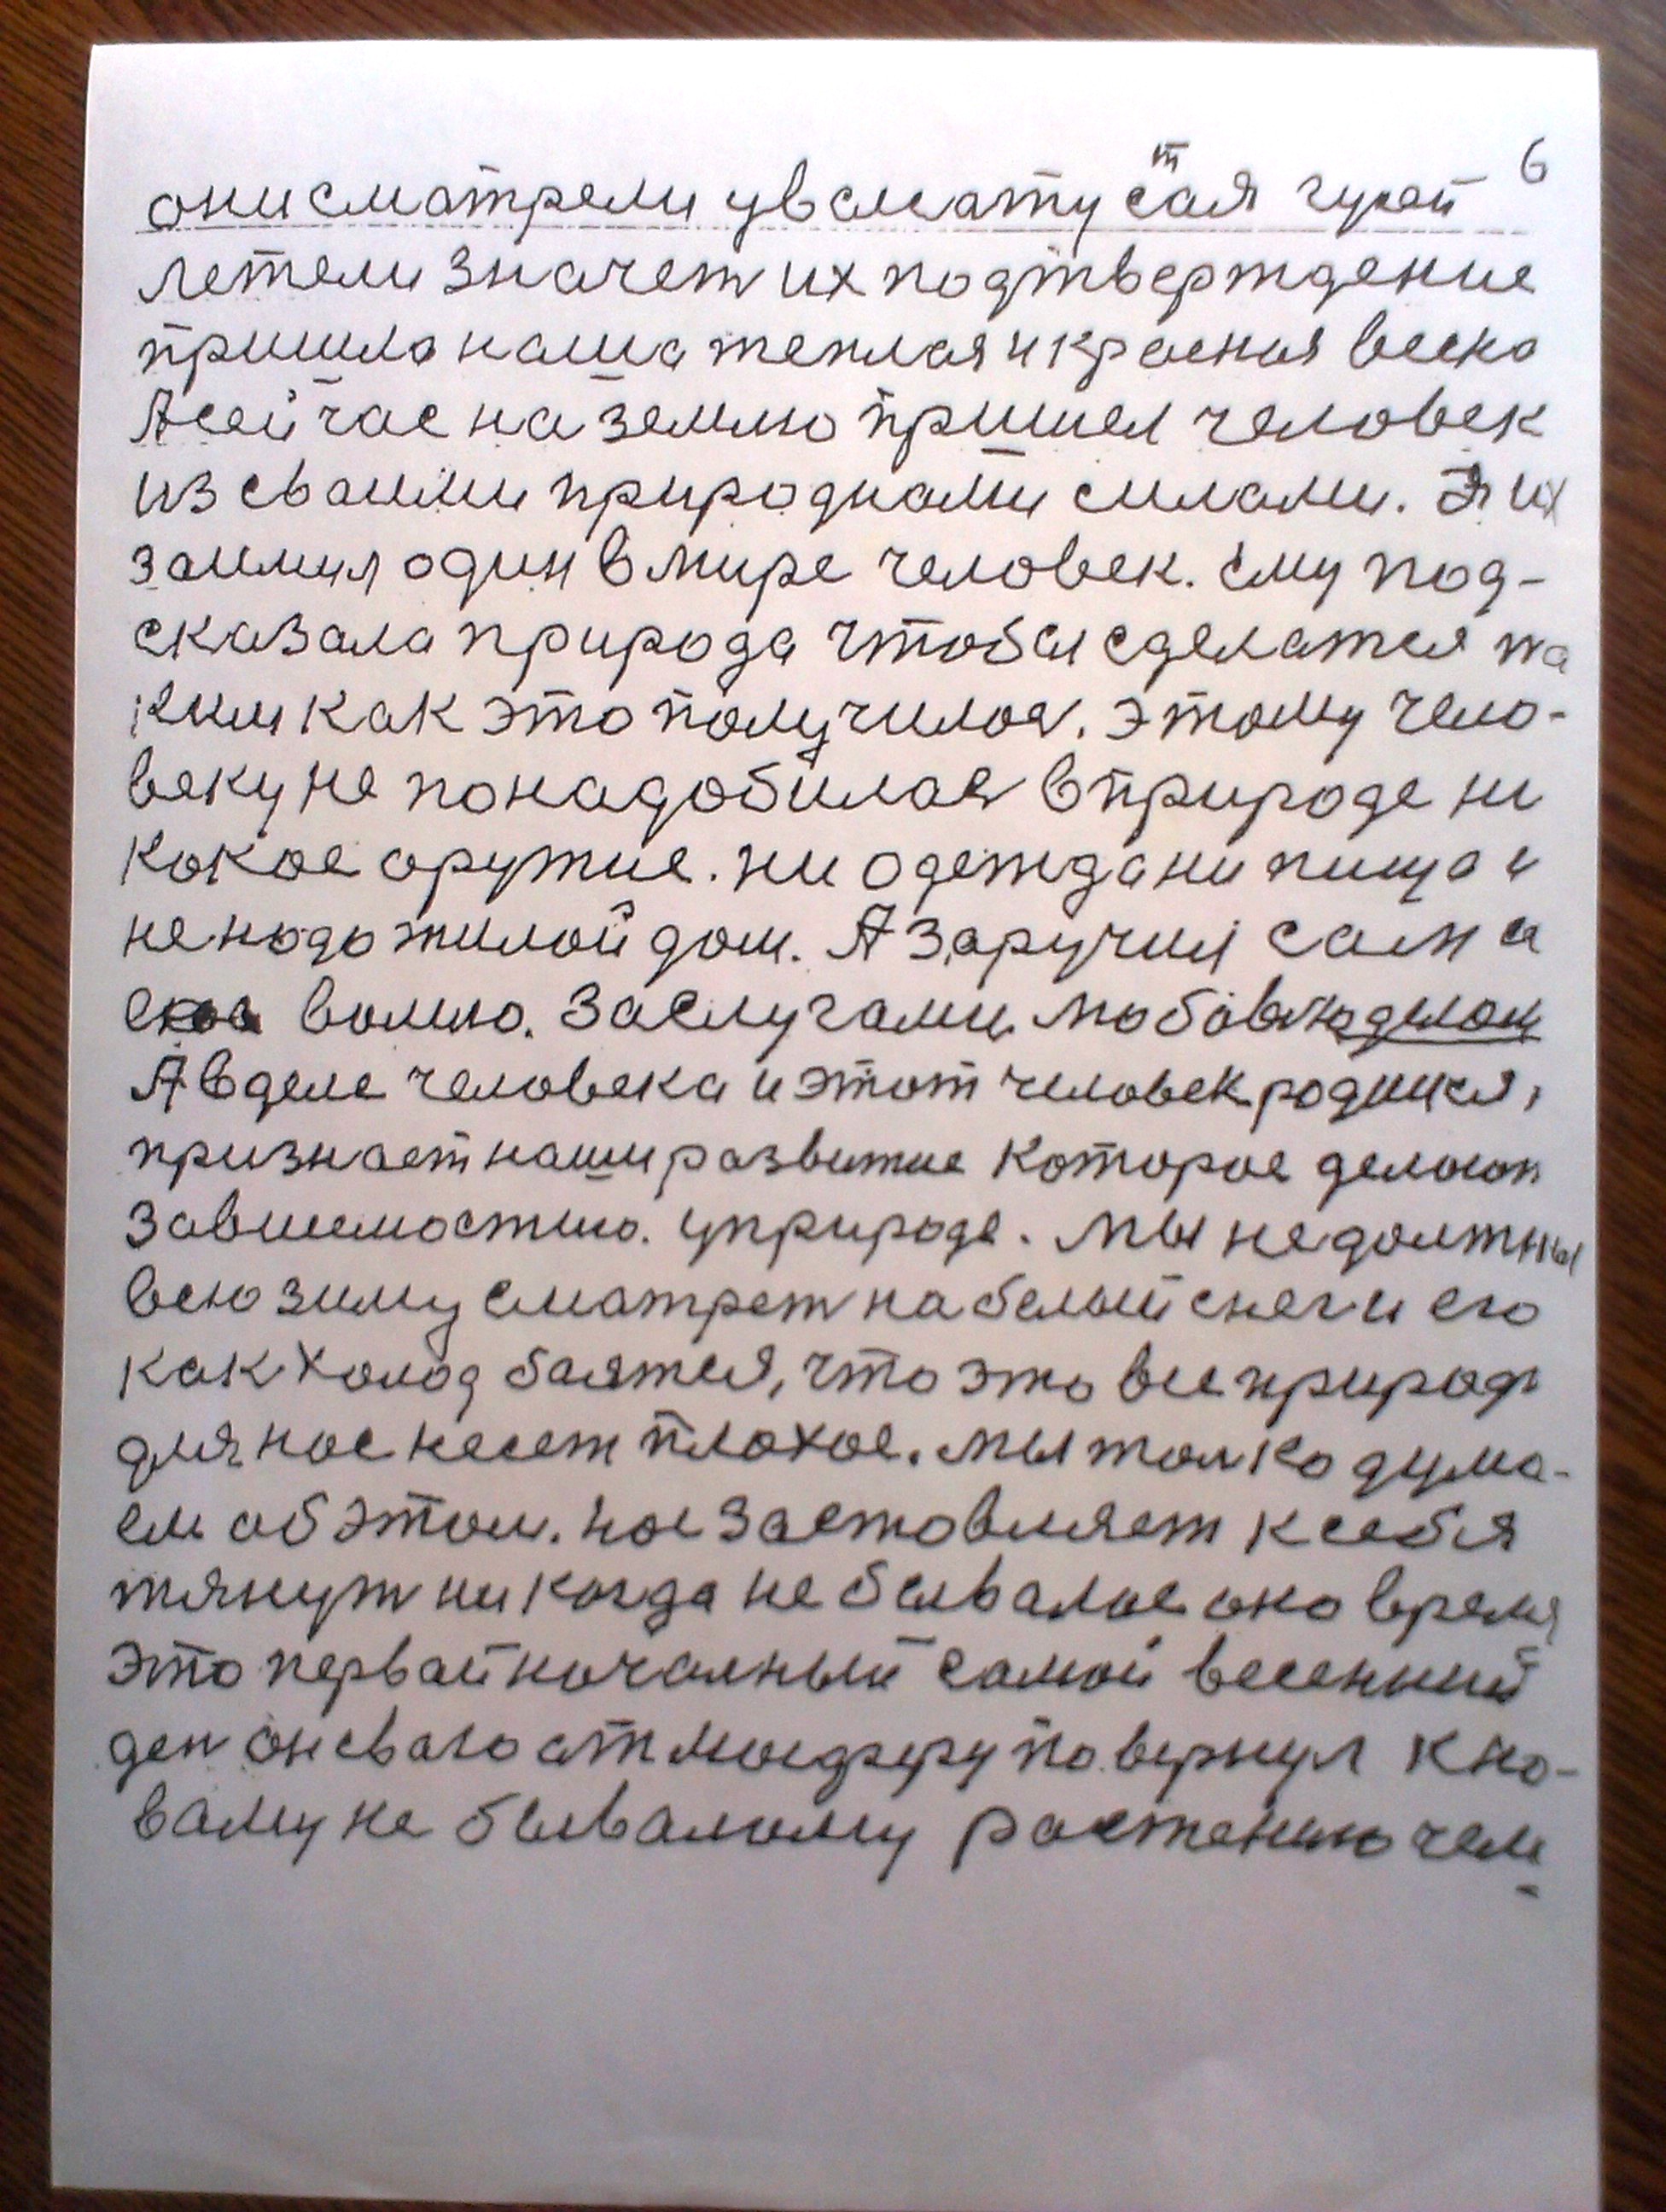 6
они сматрели увысату стая гусей
летели значет их подтверждение
пришла наша теплая и красная весна
А сейчас на землю пришел человек
из сваими природнами силами. Я их
заимил один в мире человек. ему под-
сказала природа чтобы сделатся та
ким как это получилос. этому чело-
веку не понадобилас в природе ни
какое оружие. ни одежда ни пища и
не надо жилой дом. А заручил сам а
волю. Заслугами любовью делом
А в деле человека и этот человек родился,
признает наши развитие которое делают
Зависмостию. у природе. мы не должны
всю зиму сматрет на белый снег и его
как холод баятся, что это все природ
для нас несет плохое. мы толко дума-
ем об этом. нас заставляет к себя
тянут ни когда не бывалое оно время
это первай началный самой весенний
ден он сваю атмосферу повернул к но-
ваму не бывалому растению чем